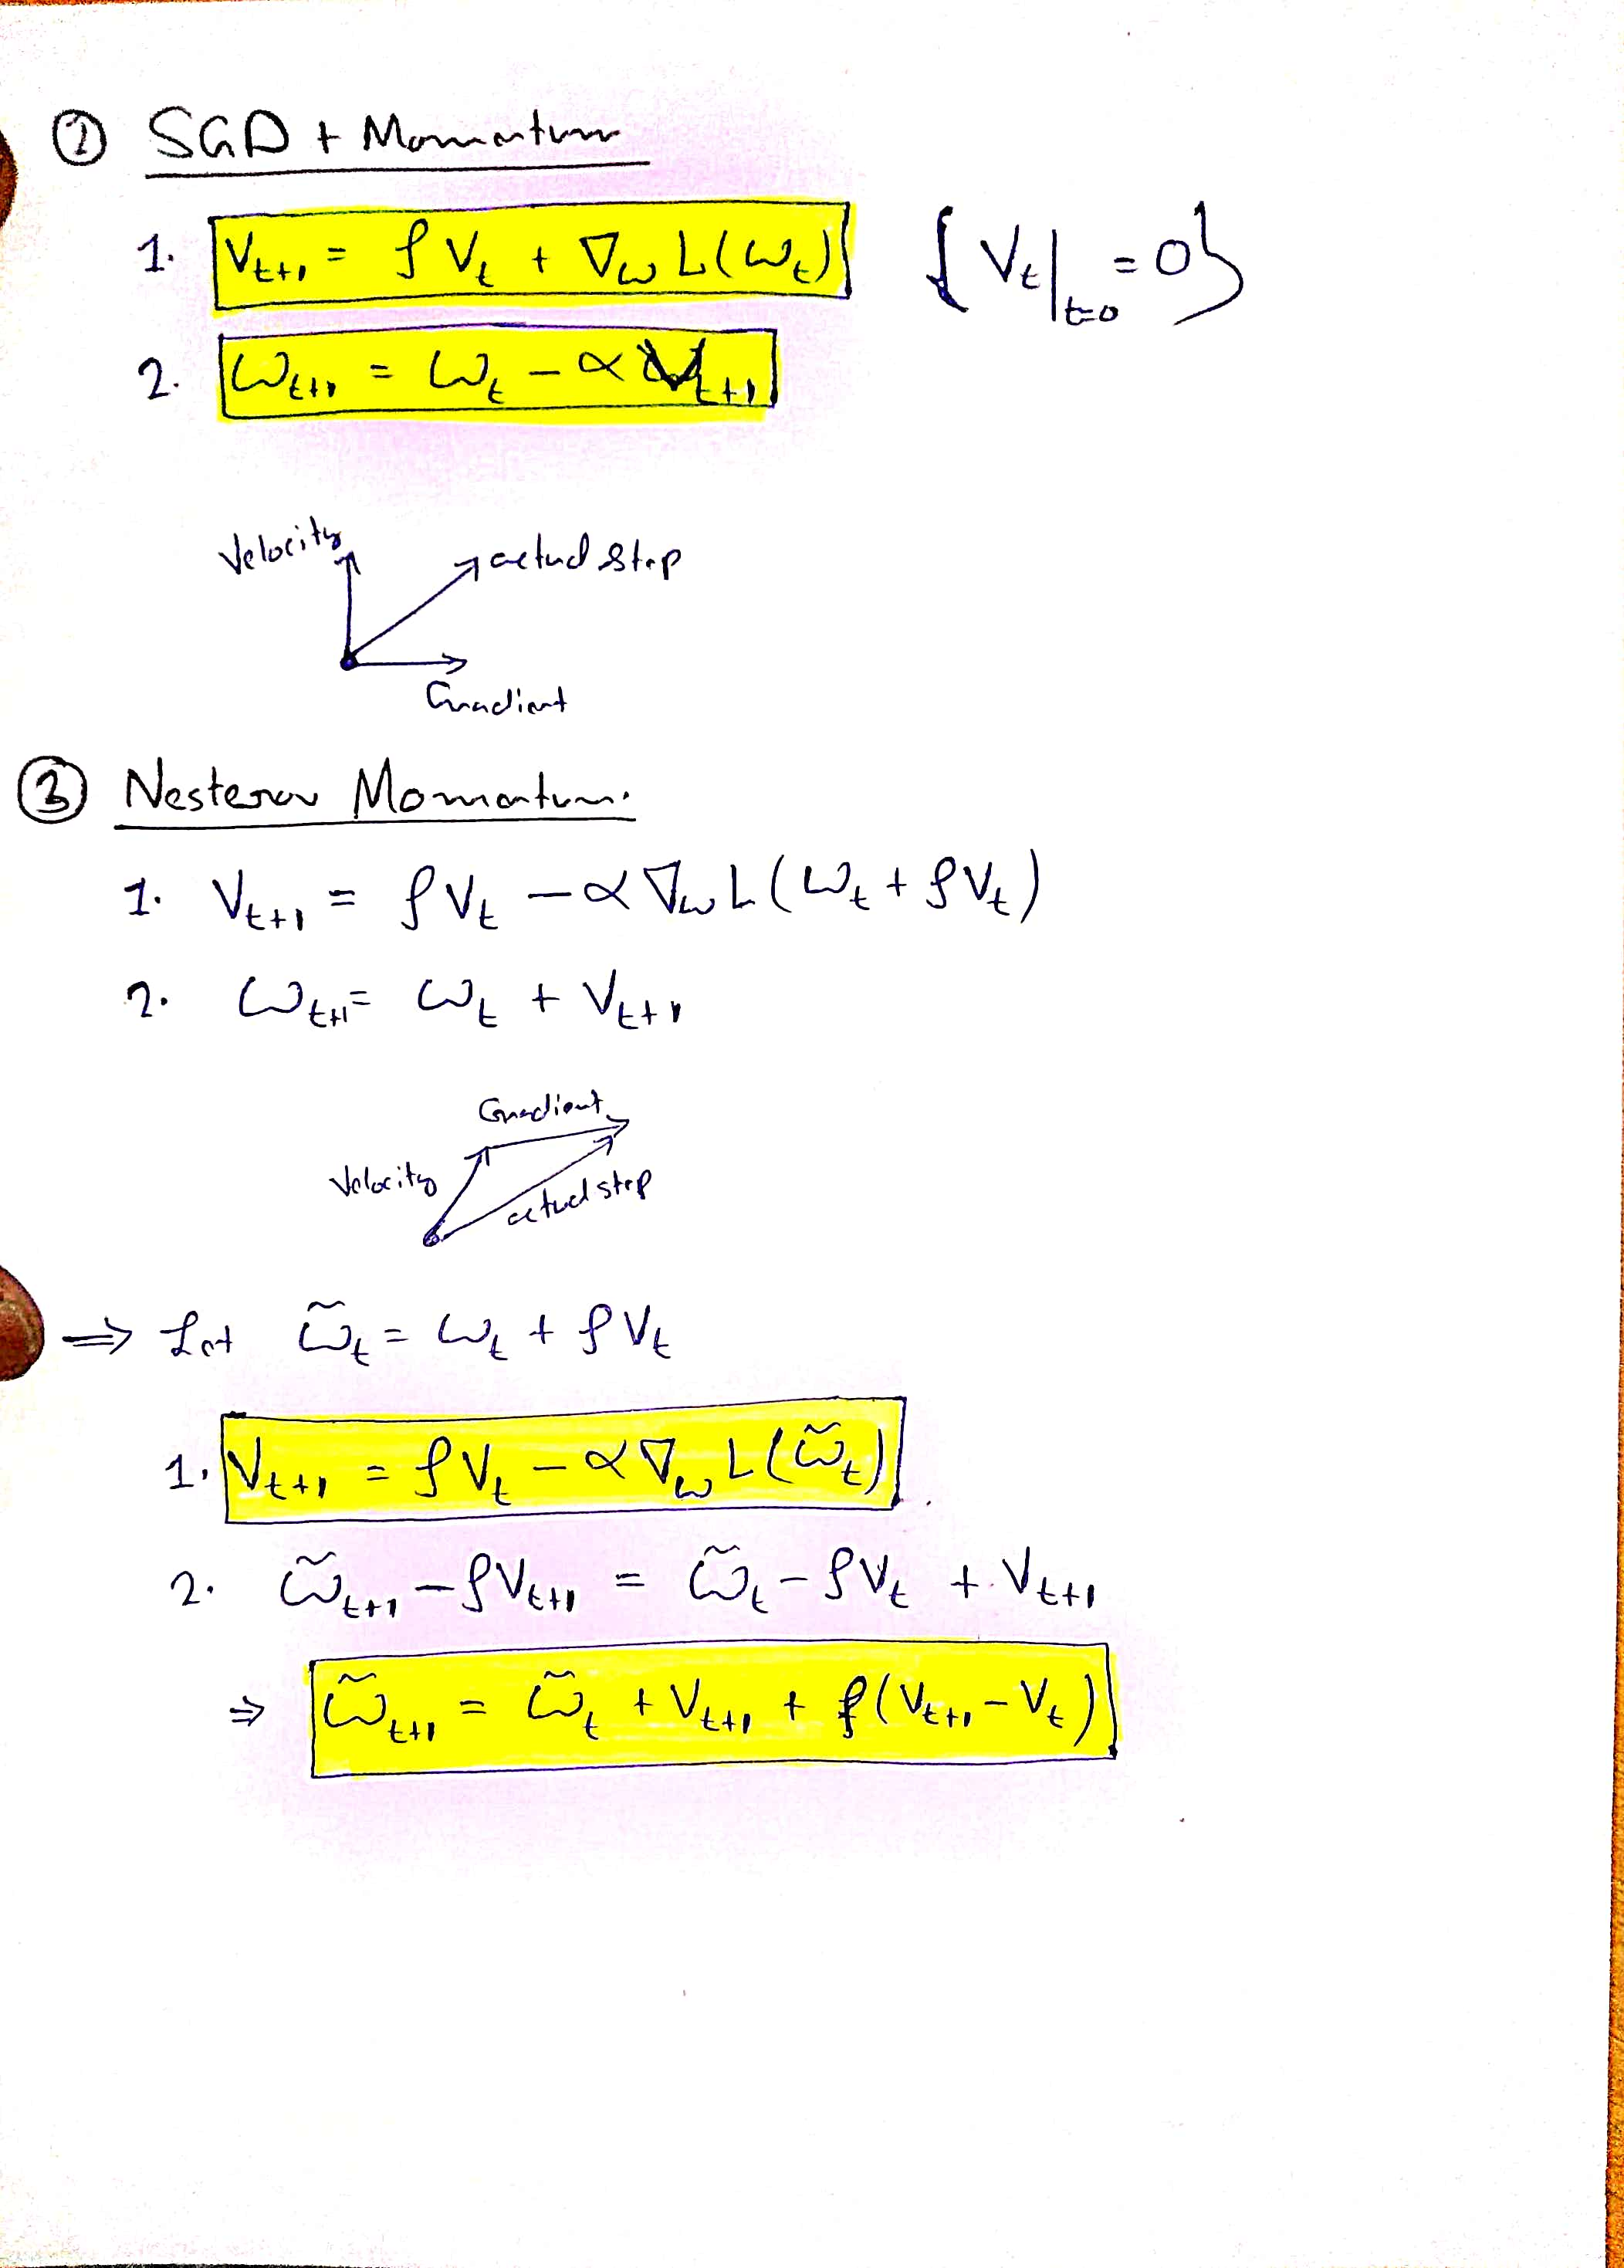 ② SGD + Momentum
1. V_{t+1} = ρV_t + ∇_ω L(ω_t) {V_t|_{t=0} = 0}
2. ω_{t+1} = ω_t - αV_{t+1}
Velocity
actual step
Gradient
③ Nesterov Momentum.
1. V_{t+1} = ρV_t - α∇_ω L(ω_t + ρV_t)
2. ω_{t+1} = ω_t + V_{t+1}
Gradient
Velocity
actual step
⇒ Let ω̃_t = ω_t + ρV_t
1. V_{t+1} = ρV_t - α∇_ω L(ω̃_t)
2. ω̃_{t+1} - ρV_{t+1} = ω̃_t - ρV_t + V_{t+1}
⇒ ω̃_{t+1} = ω̃_t + V_{t+1} + ρ(V_{t+1} - V_t)